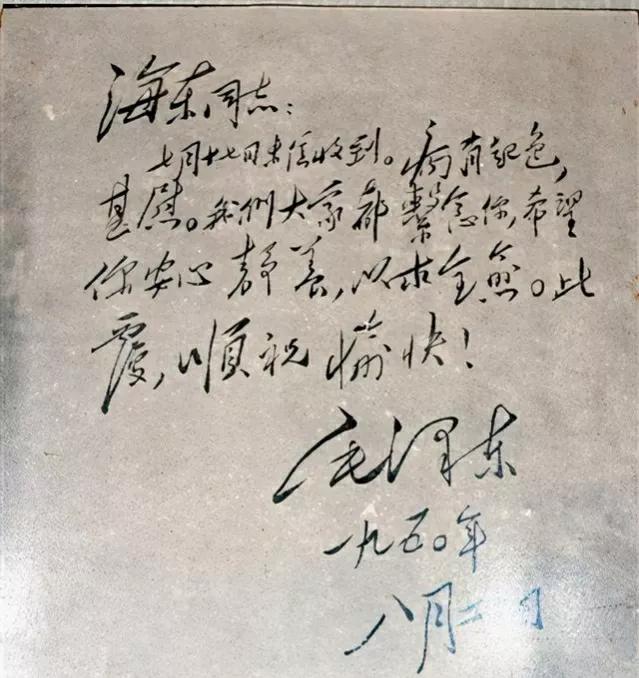 海东同志：
七月十七日来信收到。病有起色，
甚慰。我們大家都繫念你，希望
你安心静養，以求全愈。此
覆，順祝愉快！
毛泽东
一九五〇年
八月二日